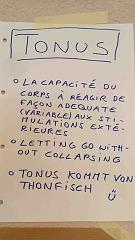 TONUS
o LA CAPACITÉ DU
CORPS À RÉAGIR DE
FAÇON ADEQUATE
(VARIABLE) AUX STI-
MULATIONS EXTÉ-
RIEURES
o LETTING GO WITH-
OUT COLLAPSING
o TONUS KOMMT VON
THONFISCH Ü